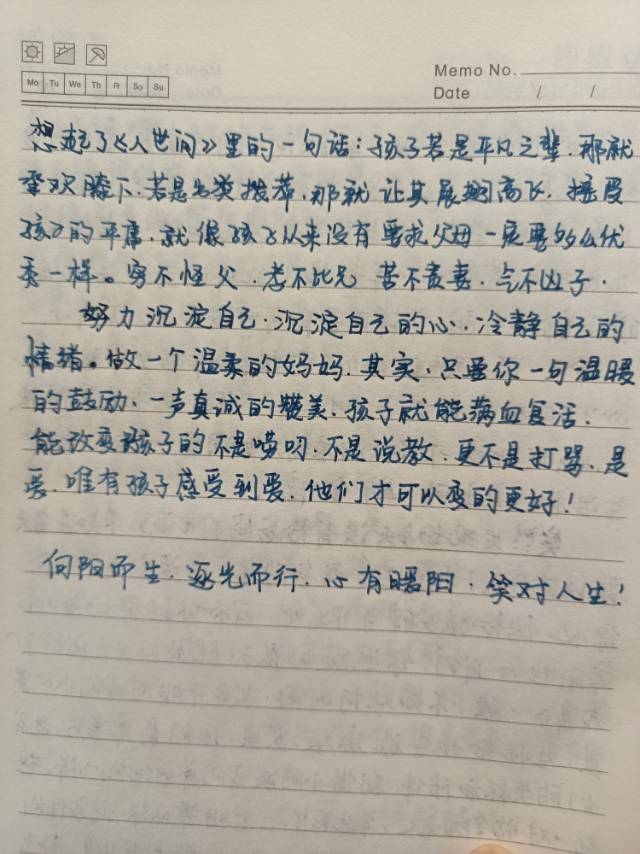 Memo No.
Mo Tu We Th Fr Sa Su
Date / /
想起了《人世间》里的一句话：孩子若是平凡之辈，那就
承欢膝下，若是出类拔萃，那就让其展翅高飞，接受
孩子的平庸，就像孩子从来没有要求父母一定要多么优
秀一样。穷不怪父，孝不比兄，苦不责妻，气不凶子。
努力沉淀自己，沉淀自己的心，冷静自己的
情绪。做一个温柔的妈妈，其实，只要你一句温暖
的鼓励，一声真诚的赞美，孩子就能满血复活，
能改变孩子的不是唠叨，不是说教，更不是打骂，是
爱，唯有孩子感受到爱，他们才可以变的更好！
向阳而生，逐光而行，心有暖阳，笑对人生！